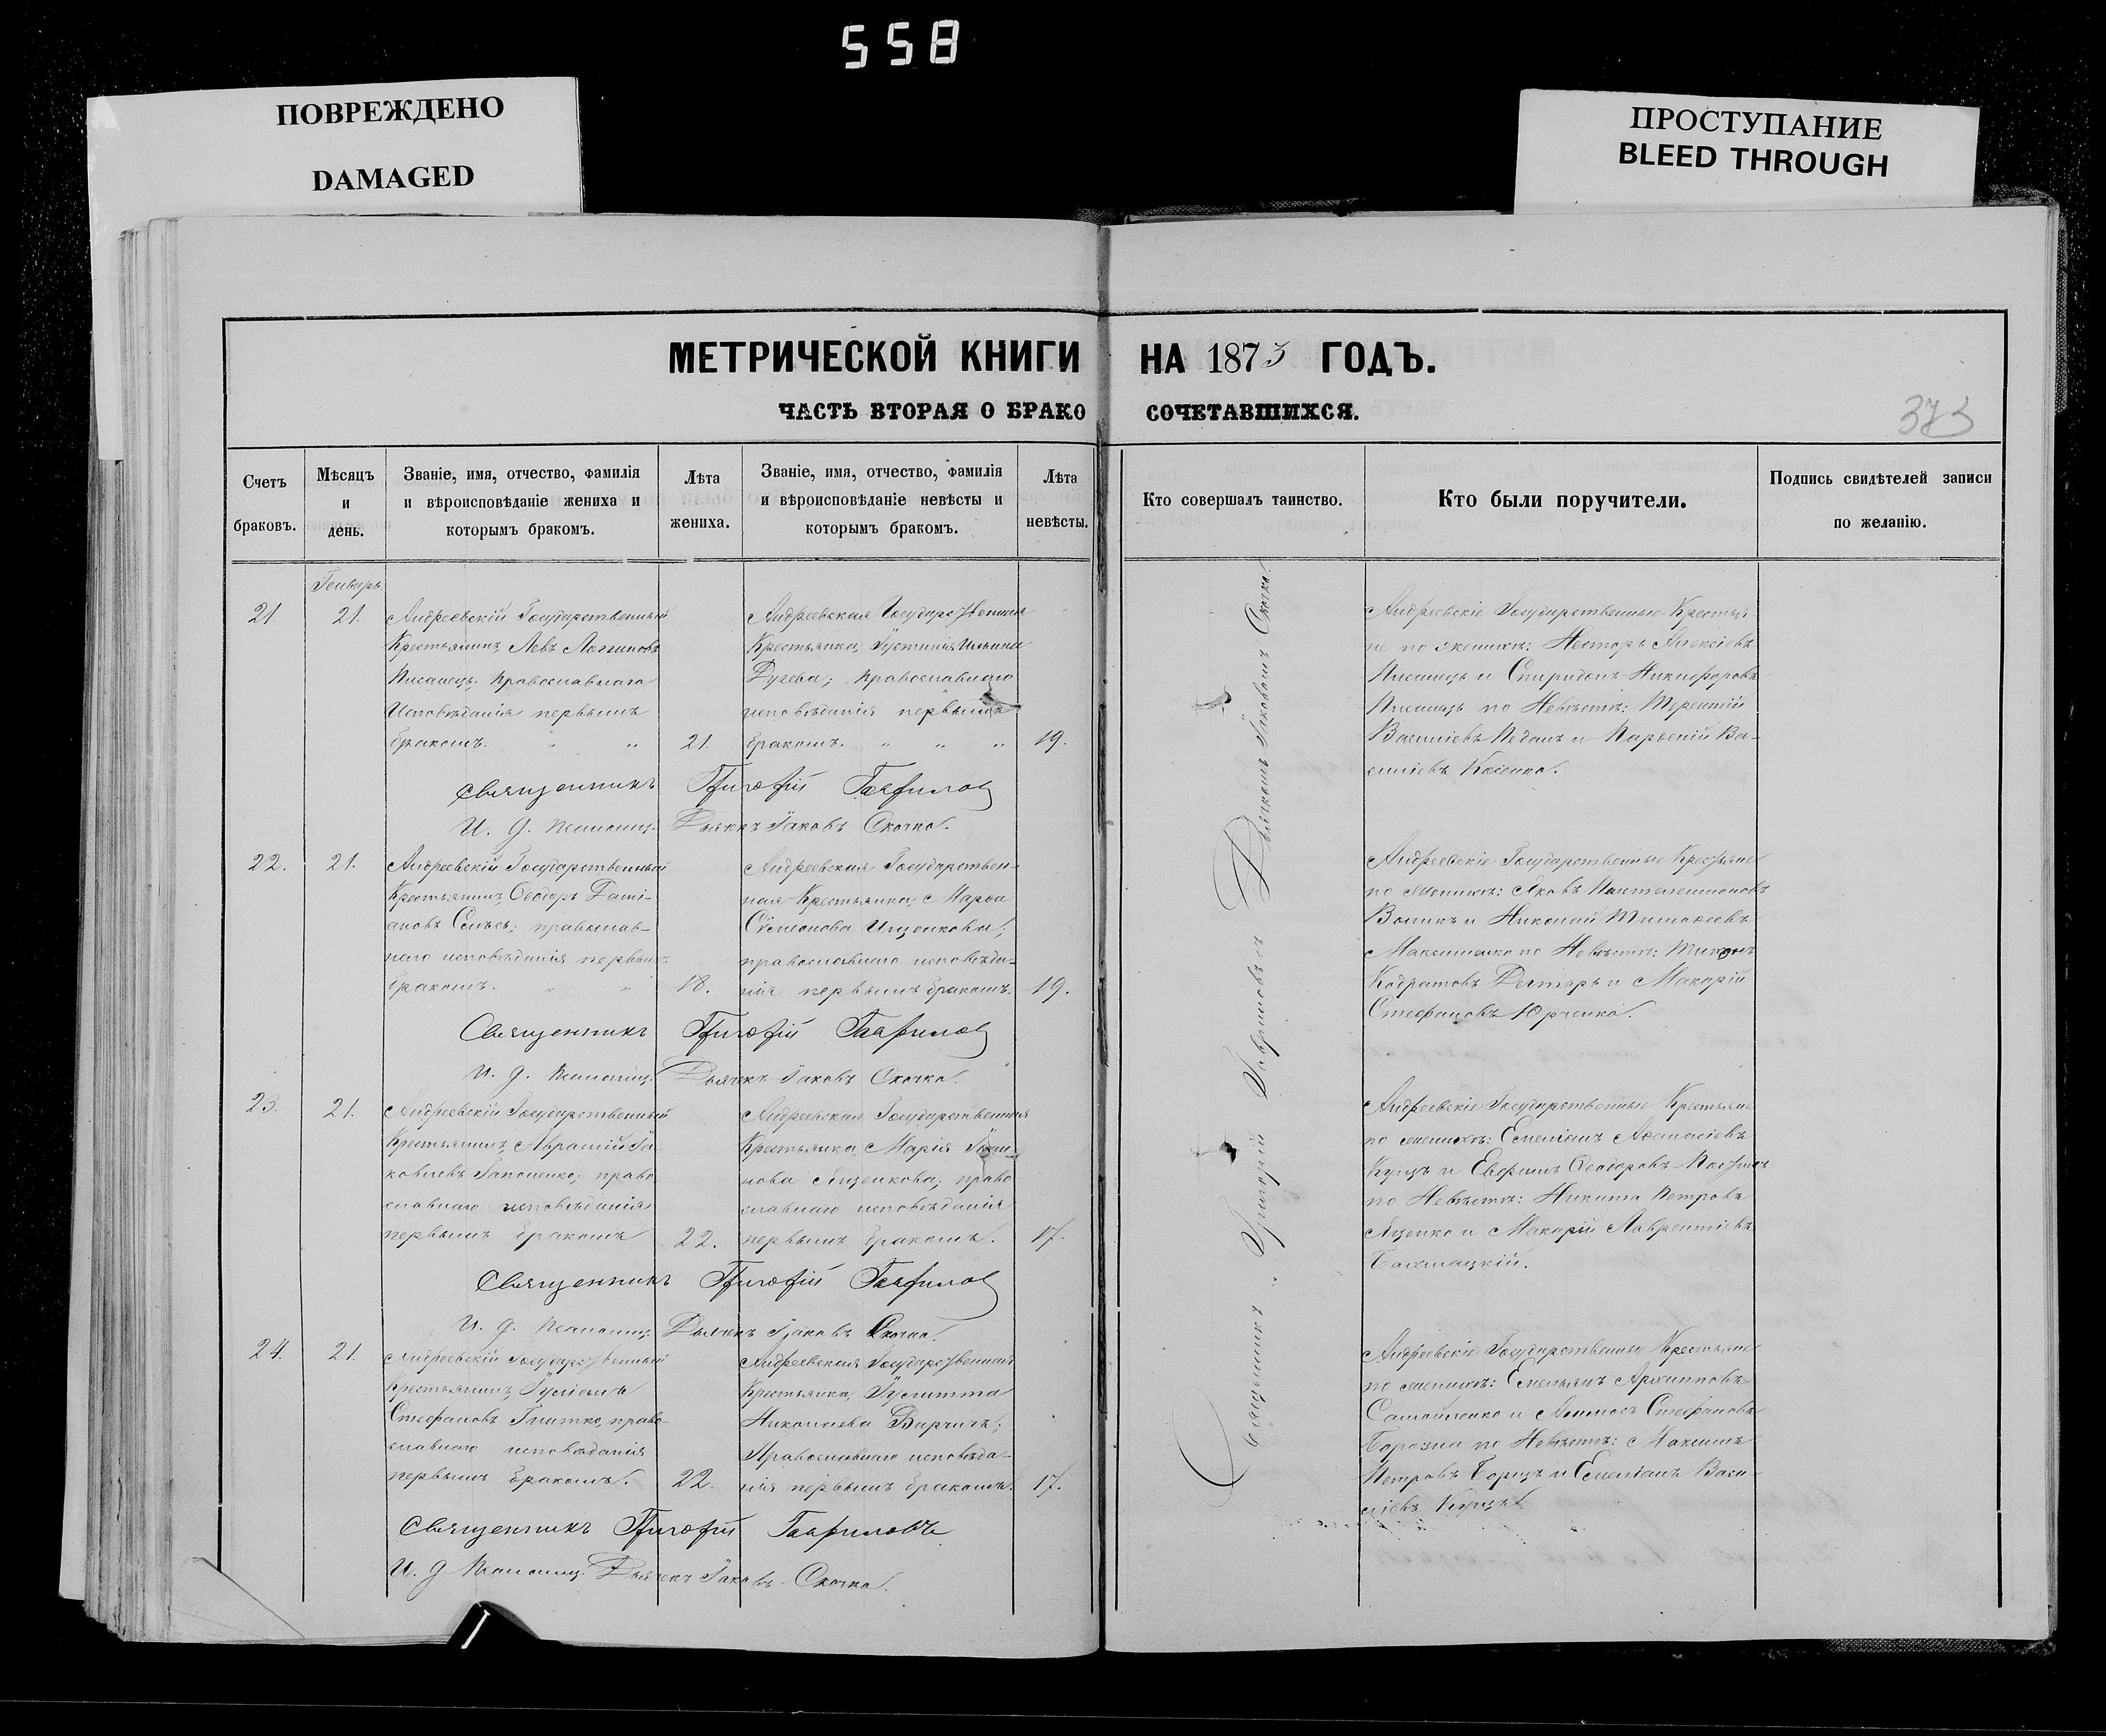 558
ПОВРЕЖДЕНО
DAMAGED
ПРОСТУПАНИЕ
BLEED THROUGH
МЕТРИЧЕСКОЙ КНИГИ НА 1873 ГОДЪ.
ЧАСТЬ ВТОРАЯ О БРАКОСОЧЕТАВШИХСЯ.
373
Счетъ браковъ.
Мѣсяцъ и день.
Званіе, имя, отчество, фамилія
и вѣроисповѣданіе жениха и
которымъ бракомъ.
Лѣта жениха.
Званіе, имя, отчество, фамилія
и вѣроисповѣданіе невѣсты и
которымъ бракомъ.
Лѣта невѣсты.
Кто совершалъ таинство.
Кто были поручители.
Подпись свидѣтелей записи
по желанію.
Генварь
21. 21.
Андреевскій Государственный
Крестьянинъ, Левъ Логиновъ
Писанецъ; православнаго
исповѣданія первымъ
бракомъ. 21.
Андреевская Государственная
Крестьянка, Іустинія Ильина
православнаго
исповѣданія первымъ
бракомъ. 19.
Андреевскіе Государственные Крестья-
не по женихѣ: Несторъ Алексіевъ
Писанецъ и Спиридонъ Никифоровъ
Писанецъ по Невѣстѣ: Терентій
Василіевъ Педанъ и Парѳеній Ва-
силіевъ
Священникъ Григорій Гавриловъ
И. д. Псаломщ. Дьячекъ Іаковъ Скочко.
22. 21.
Андреевскій Государственный
Крестьянинъ, Ѳеодоръ Дамі-
ановъ православ-
наго исповѣданія первымъ
бракомъ. 18.
Андреевская Государствен-
ная Крестьянка, Марѳа
Сѵмеонова Ищенкова;
православнаго исповѣда-
нія первымъ бракомъ. 19.
Андреевскіе Государственные Крестьяне
по женихѣ: Яковъ Пантелеимоновъ
Воликъ и Николай Тимоѳеевъ
Максименко по Невѣстѣ: Тихонъ
Кодратовъ и Макарій
Стефановъ Юрченко.
Священникъ Григорій Гавриловъ
И. д. Псаломщ. Дьячекъ Іаковъ Скочко.
23. 21.
Андреевскій Государственный
Крестьянинъ, Аврамій Іа-
ковлевъ Гапоненко; право-
славнаго исповѣданія
первымъ бракомъ 22.
Андреевская Государственная
Крестьянка, Марія Іоан-
нова Яценкова; право-
славнаго исповѣданія
первымъ бракомъ. 17.
Андреевскіе Государственные Крестьяне
по женихѣ: Емеліанъ Аѳанасіевъ
Купцъ и Евфимъ Ѳеодоровъ
по Невѣстѣ: Никита Петровъ
Яценко и Макарій Лаврентіевъ
Бахмацкій.
Священникъ Григорій Гавриловъ
И. д. Псаломщ. Дьячекъ Іаковъ Скочко.
24. 21.
Андреевскій Государственный
Крестьянинъ,
Стефановъ право-
славнаго исповѣданія
первымъ бракомъ. 22.
Андреевская Государственная
Крестьянка, Іулитта
Николаева
Православнаго исповѣда-
нія первымъ бракомъ. 17.
Андреевскіе Государственные Крестьяне
по женихѣ: Емельянъ Архиповъ
Самойленко и Стефановъ
Борозна по Невѣстѣ: Максимъ
Петровъ и Емеліанъ Васи-
ліевъ
Священникъ Григорій Гавриловъ
И. д. Псаломщ. Дьячекъ Іаковъ Скочко.
Священникъ Григорій Гавриловъ съ Дьячкомъ Іаковомъ Скочко.